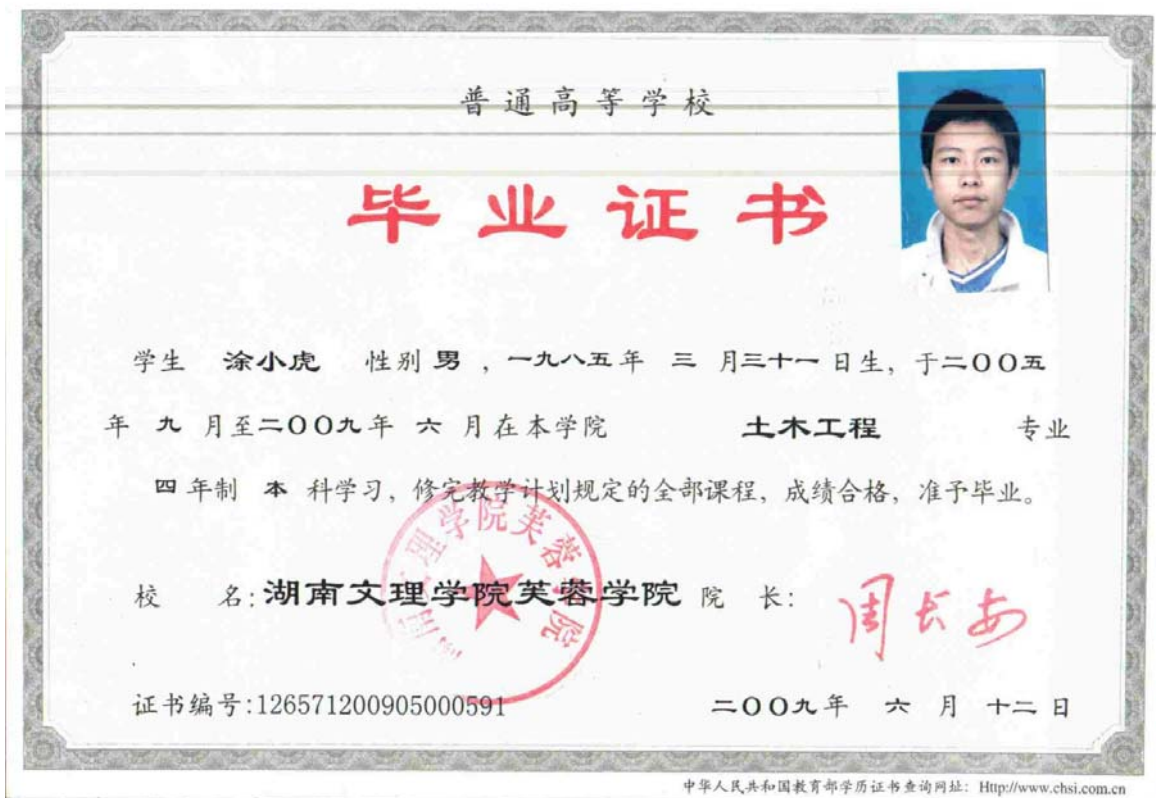 普通高等学校
毕业证书
学生 涂小虎 性别 男 ，一九八五年 三 月三十一日生，于二〇〇五
年 九 月至二〇〇九年 六 月在本学院 土木工程 专业
四 年制 本 科学习，修完教学计划规定的全部课程，成绩合格，准予毕业。
湖南文理学院芙蓉学院
校 名：湖南文理学院芙蓉学院 院 长：周长安
证书编号：126571200905000591 二〇〇九年 六 月 十二 日
中华人民共和国教育部学历证书查询网址：Http://www.chsi.com.cn